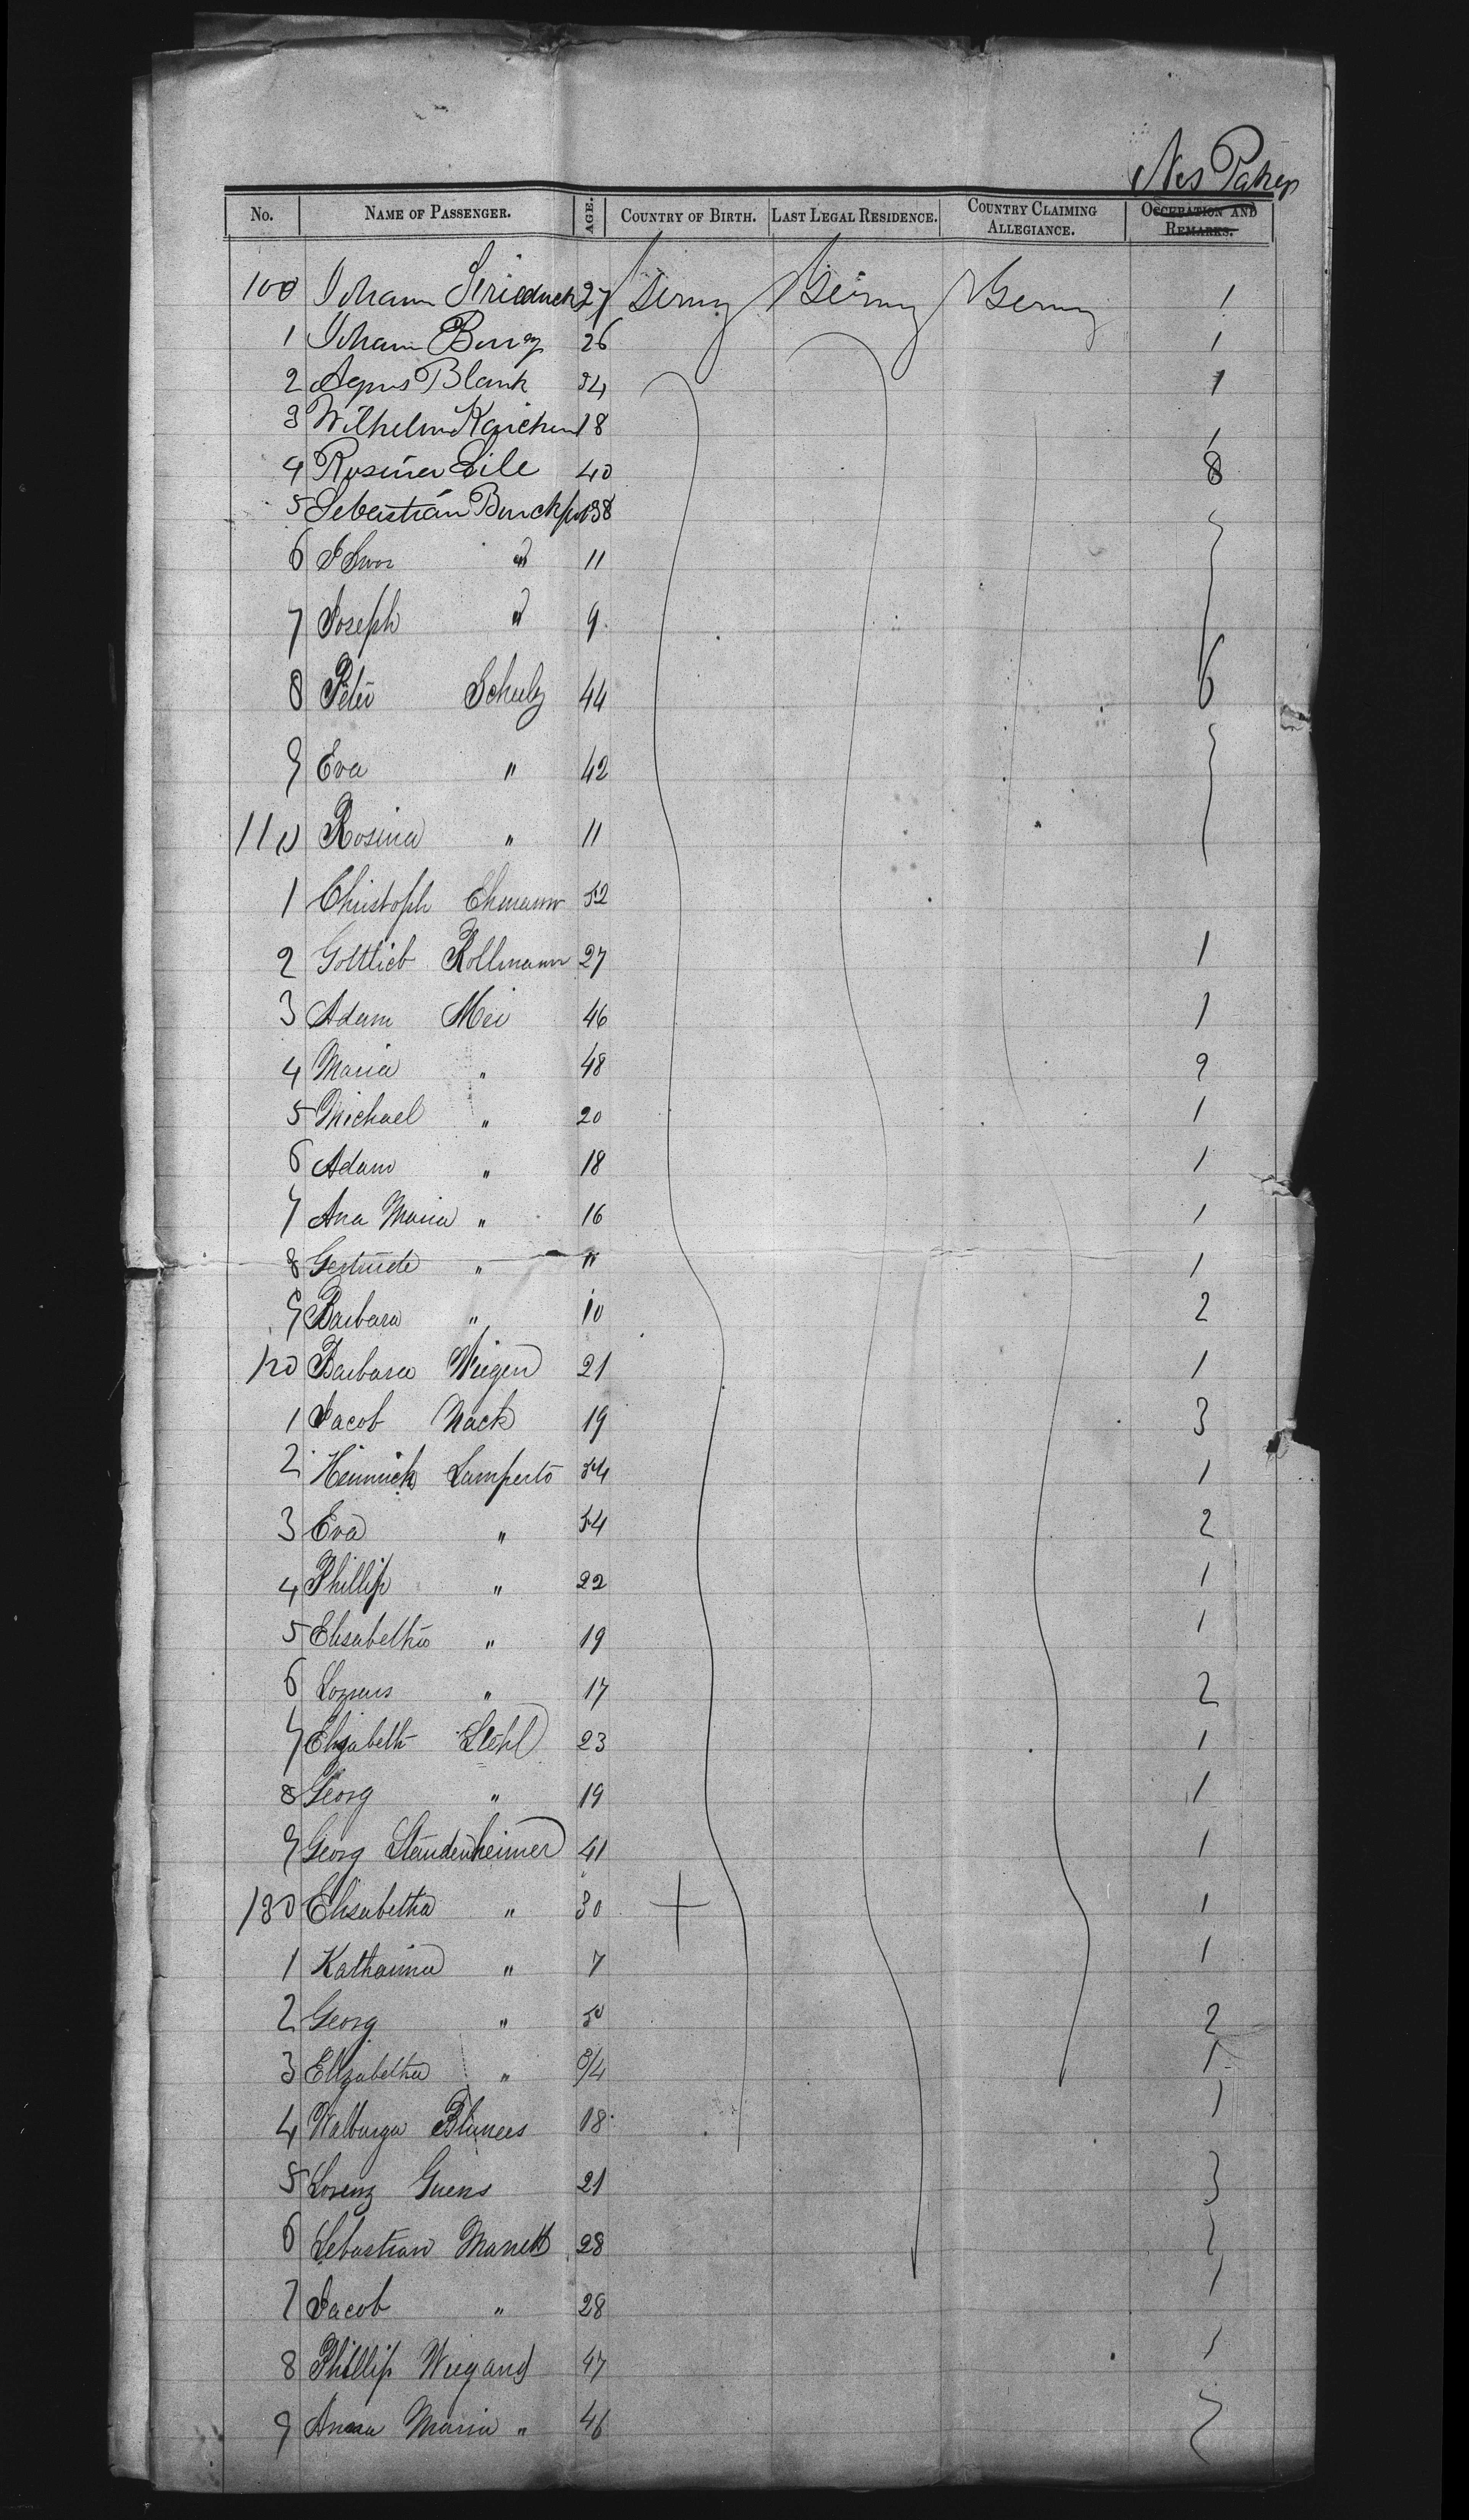 Nos Pakgs
No. NAME OF PASSENGER. AGE. COUNTRY OF BIRTH. LAST LEGAL RESIDENCE. COUNTRY CLAIMING ALLEGIANCE. OCCUPATION AND REMARKS.
100 Johann 27 Germy Germy Germy 1
1 Johann Burg 26 1
2 Agnes Blank 1
3 Wilhelm 18 1
4 Rosina 40 8
5 Sebastian 38
6 " 11
7 Joseph " 9
8 Peter Schulz 44 6
9 Eva " 42
110 Rosina " 11
1 Christoph Ehmann 52
2 Gottlieb Kollmann 27 1
3 Adam Mei 46 1
4 Maria " 48 2
5 Michael " 20 1
6 Adam " 18 1
7 Ana Maria " 16 1
8 Gertrude " 11 1
9 Barbara " 10 2
120 Barbara 21 1
1 Jacob Nack 19 3
2 Heinrich Lamperts 54 1
3 Eva " 54 2
4 Phillip " 22 1
5 Elisabetha " 19 1
6 " 17 2
7 Elisabeth Stehl 23 1
8 Georg " 19 1
9 Georg Steudenheimer 41 1
130 Elisabetha " 30 + 1
1 Katharina " 7 1
2 Georg " 2
3 Elizabetha " 3/4 1
4 Walburga 18 1
5 Lorenz Guens 21 3
6 Sebastian 28 1
7 Jacob " 28 1
8 Phillip Wiegand 47 1
9 Anna Maria " 46